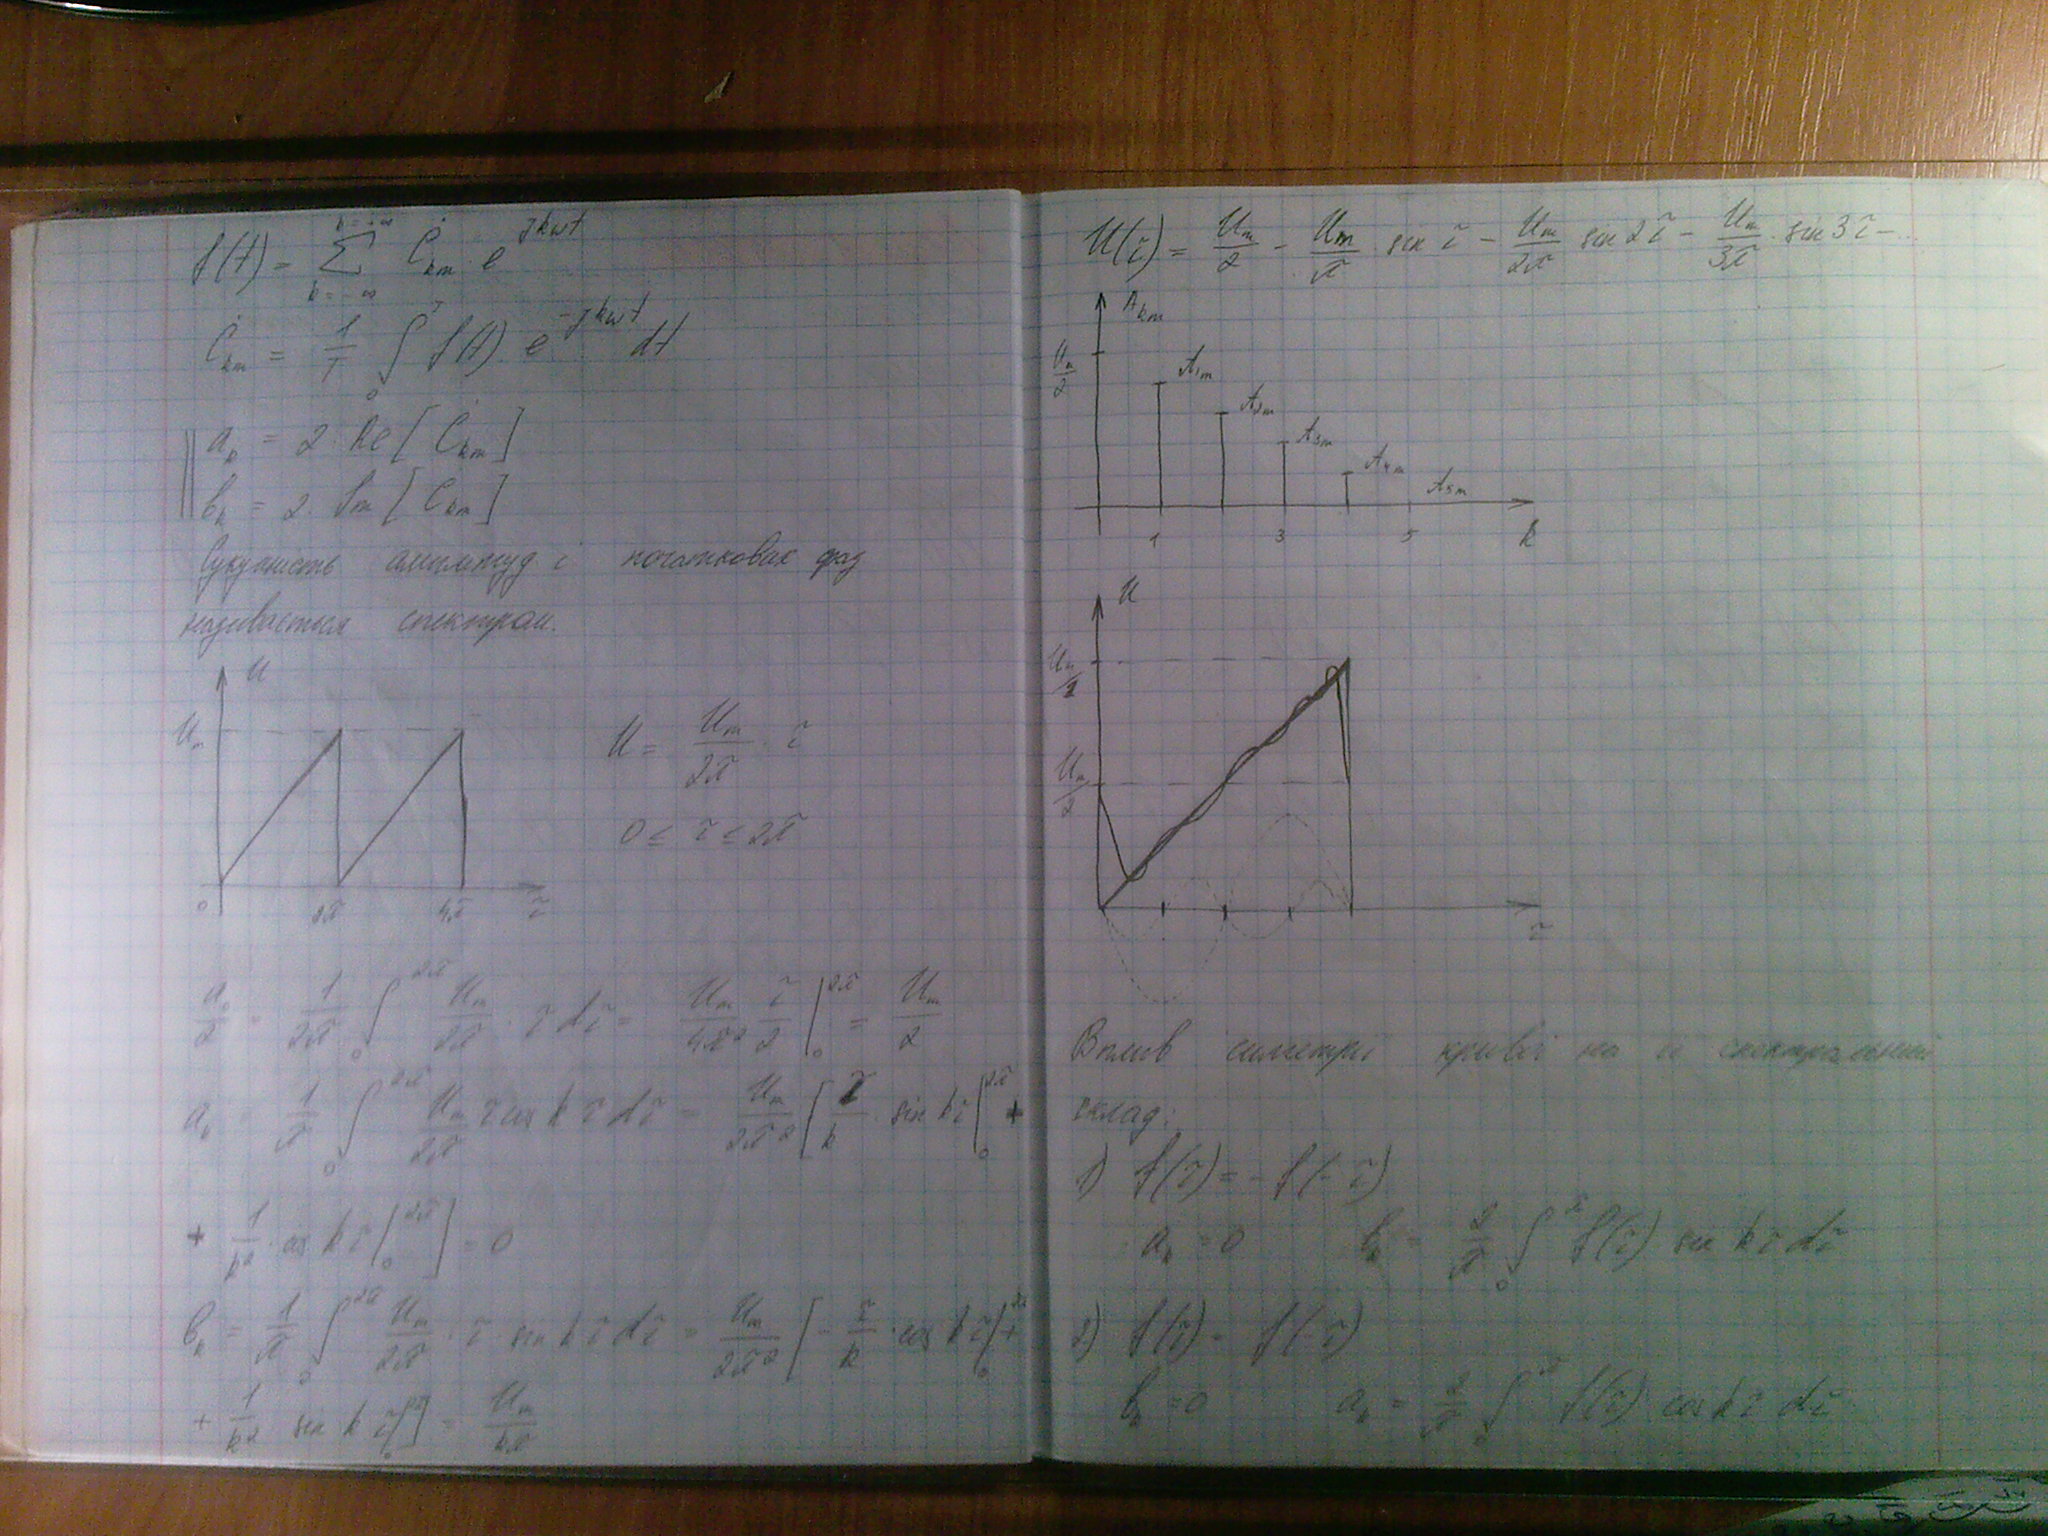 k=+∞
f(t) = Σ Ċkm · e^jkωt
k=-∞
Ċkm = 1/T ∫₀ᵀ f(t) · e^-jkωt dt
ak = 2 · Re [Ċkm]
bk = 2 · Im [Ċkm]
Сукупність амплітуд і початкових фаз
називається спектром.
U
Um
0 2π 4π τ
U = Um/2π · τ
0 ≤ τ ≤ 2π
a₀/2 = 1/2π ∫₀^2π Um/2π · τ dτ = Um/4π² τ/2 |₀^2π = Um/2
ak = 1/π ∫₀^2π Um/2π τ cos kτ dτ = Um/2π² [ τ/k · sin kτ |₀^2π +
+ 1/k² · cos kτ |₀^2π ] = 0
bk = 1/π ∫₀^2π Um/2π · τ · sin kτ dτ = Um/2π² [ - τ/k · cos kτ |₀^2π +
+ 1/k² sin kτ |₀^2π ] = Um/kπ
U(τ) = Um/2 - Um/π · sin τ - Um/2π sin 2τ - Um/3π · sin 3τ - ...
Akm
Um/2
A1m
A2m
A3m
A4m
A5m
1 3 5 k
U
Um/2
τ
Вплив симетрії кривої на її спектральний
склад:
1) f(τ) = - f(-τ)
ak = 0 bk = 2/π ∫₀^π f(τ) sin kτ dτ
2) f(τ) = f(-τ)
bk = 0 ak = 2/π ∫₀^π f(τ) cos kτ dτ